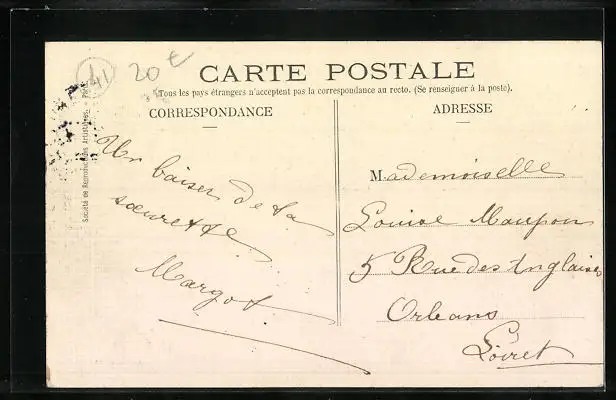 41
20 €
CARTE POSTALE
Tous les pays étrangers n'acceptent pas la correspondance au recto. (Se renseigner à la poste).
CORRESPONDANCE
ADRESSE
Société de Reproductions Artistiques. -
Un baiser de ta
sœurette
Margot
Mademoiselle
Louise Maupou
5 Rue des Anglaises
Orléans
Loiret